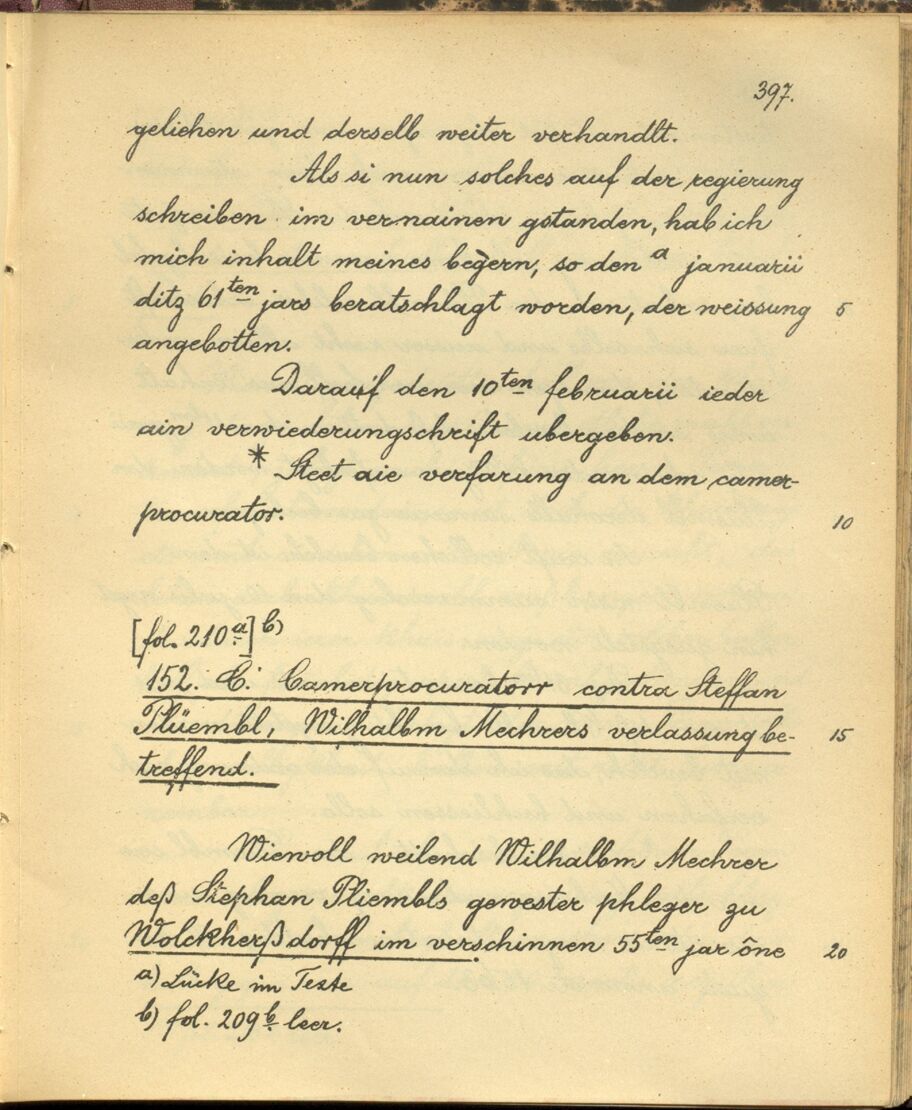 397.
geliehen und derselb weiter verhandlt.
Als si nun solches auf der regierung
schreiben im vernainen gstanden, hab ich
mich inhalt meines begern, so den a januarii
ditz 61ten jars beratschlagt worden, der weissung 5
angebotten.
Darauf den 10ten februarii ieder
ain verwiederungschrift ubergeben.
* Steet die verfarung an dem camer-
procurator. 10
[fol. 210a] b)
152. C. Camerprocuratorr contra Steffan
Plüembl, Wilhalbm Mechrers verlassung be- 15
treffend.
Wiewoll weilend Wilhalbm Mechrer
deß Stephan Pliembls gewester phleger zu
Wolckherßdorff im verschinnen 55ten jar óne 20
a) Lücke im Texte
b) fol. 209b leer.